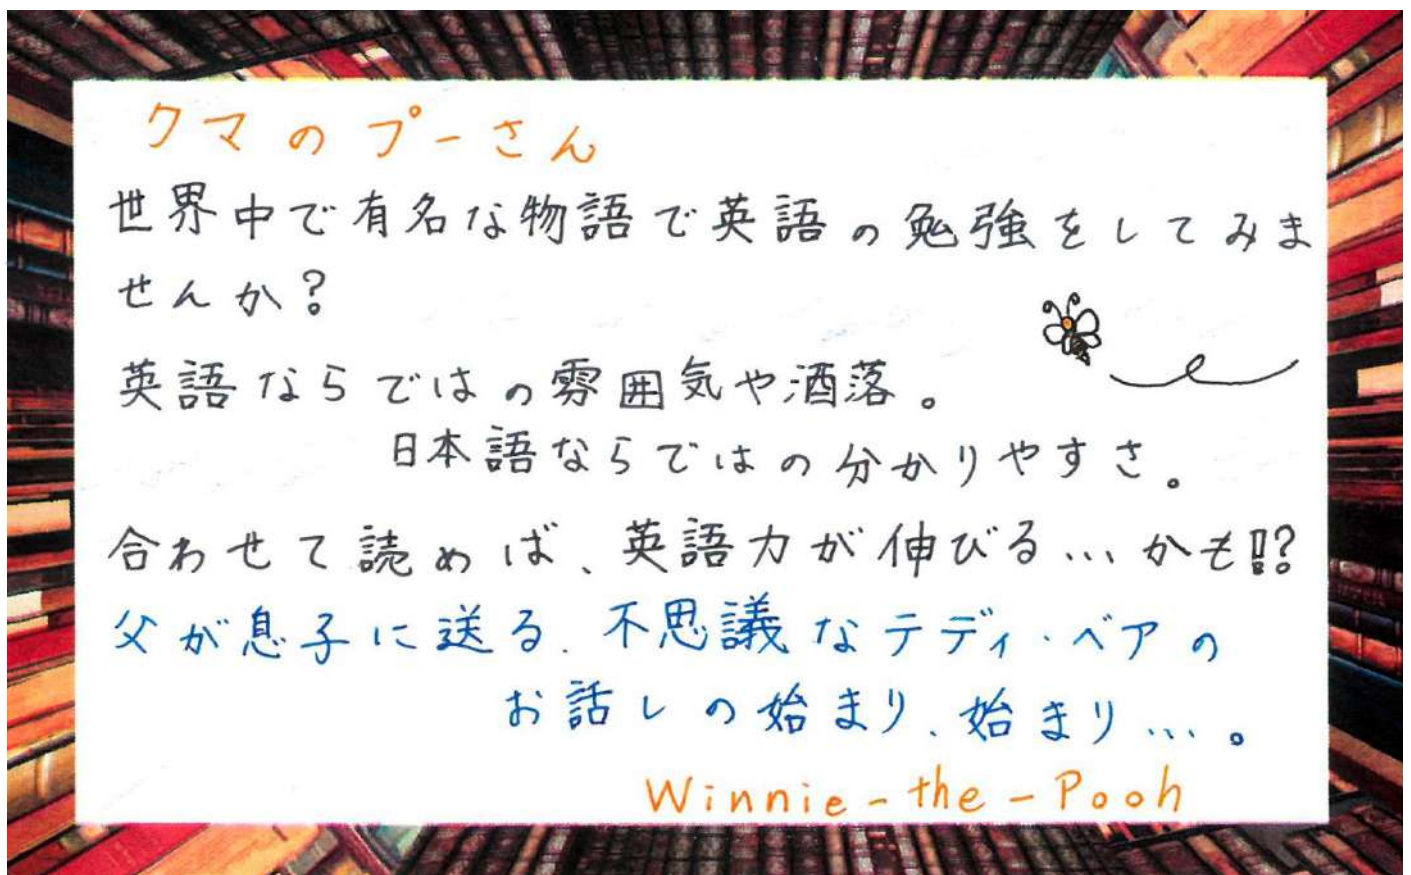 クマのプーさん
世界中で有名な物語で英語の勉強をしてみま
せんか?
英語ならではの雰囲気や洒落。
日本語ならではの分かりやすさ。
合わせて読めば、英語力が伸びる…かも!!?
父が息子に送る、不思議なテディ・ベアの
お話しの始まり、始まり…。
Winnie-the-Pooh